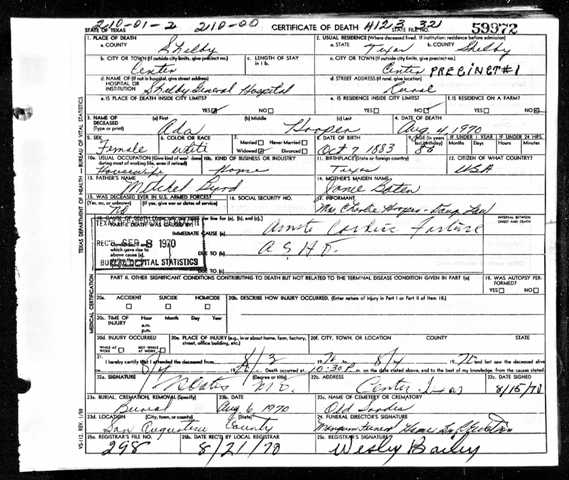 210-01-2 210-00 CERTIFICATE OF DEATH 4123 32
STATE OF TEXAS STATE FILE NO. 59972
1. PLACE OF DEATH
a. COUNTY Shelby
2. USUAL RESIDENCE (Where deceased lived. If institution: residence before admission)
a. STATE Texas b. COUNTY Shelby
b. CITY OR TOWN (If outside city limits, give precinct no.) Center
c. LENGTH OF STAY in 1 b.
c. CITY OR TOWN (If outside city limits, give precinct no.) Center PRECINCT #1
d. NAME OF (If not in hospital, give street address) HOSPITAL OR INSTITUTION Shelby General Hospital
d. STREET ADDRESS (If rural, give location) Rural
e. IS PLACE OF DEATH INSIDE CITY LIMITS? YES NO
e. IS RESIDENCE INSIDE CITY LIMITS? YES NO
f. IS RESIDENCE ON A FARM? YES NO
3. NAME OF DECEASED (Type or print)
(a) First Ada (b) Middle (c) Last Hooper
4. DATE OF DEATH Aug 4, 1970
5. SEX Female
6. white
7. Married Never Married Widowed Divorced
8. DATE OF BIRTH Oct 7 1883
9. AGE (In years last birthday) 86
IF UNDER 1 YEAR Months Days
IF UNDER 24 HRS. Hours Minutes
10a. USUAL OCCUPATION (Give kind of work done during most of working life, even if retired) Housewife
10b. KIND OF BUSINESS OR INDUSTRY Home
11. BIRTHPLACE (State or foreign country) Texas
12. CITIZEN OF WHAT COUNTRY? USA
13. FATHER'S NAME
14. MOTHER'S MAIDEN NAME
15. WAS DECEASED EVER IN U.S. ARMED FORCES? (Yes, no, or unknown) (If yes, give war or dates of service) No
16. SOCIAL SECURITY NO.
17. INFORMANT
INTERVAL BETWEEN ONSET AND DEATH
IMMEDIATE CAUSE (a) Cardiac Failure
DUE TO (b) A.S.H.D.
DUE TO (c)
REC'D SEP -8 1970
BUREAU OF VITAL STATISTICS
PART II. OTHER SIGNIFICANT CONDITIONS CONTRIBUTING TO DEATH BUT NOT RELATED TO THE TERMINAL DISEASE CONDITION GIVEN IN PART I(a)
19. WAS AUTOPSY PERFORMED? YES NO
20a. ACCIDENT SUICIDE HOMICIDE
20b. DESCRIBE HOW INJURY OCCURRED. (Enter nature of injury in Part I or Part II of item 18.)
20c. TIME OF INJURY Hour Month Day Year a.m. p.m.
20d. INJURY OCCURRED WHILE AT WORK NOT WHILE AT WORK
20e. PLACE OF INJURY (e.g., in or about home, farm, factory, street, office building, etc.)
20f. CITY, TOWN, OR LOCATION COUNTY STATE
21. I hereby certify that I attended the deceased from 8/3 1970 to 8/4 1970 and last saw the deceased alive
on 8/4 Death occurred at 10:30 P m. on the date stated above, and to the best of my knowledge, from the causes stated.
22a. SIGNATURE (Degree or title) M.D.
22b. ADDRESS Center, Texas
22c. DATE SIGNED 8/15/70
23a. BURIAL, CREMATION, REMOVAL (Specify) Burial
23b. DATE Aug 6 1970
23c. NAME OF CEMETERY OR CREMATORY
23d. LOCATION (City, town, or county) (State) San Augustine County
24. FUNERAL DIRECTOR'S SIGNATURE
25a. REGISTRAR'S FILE NO. 298
25b. DATE REC'D BY LOCAL REGISTRAR 8/21/70
25c. REGISTRAR'S SIGNATURE Wesley Bailey
TEXAS DEPARTMENT OF HEALTH — BUREAU OF VITAL STATISTICS
MEDICAL CERTIFICATION